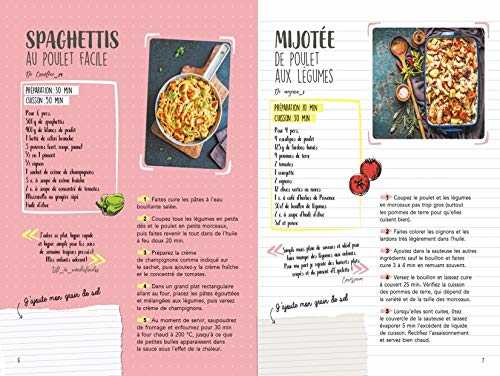 SPAGHETTIS
AU POULET FACILE
PRÉPARATION 30 MIN
CUISSON 50 MIN
Pour 6 pers.
500 g de spaghettis
400 g de blancs de poulet
1 botte de céleri branche
3 poivrons (vert, rouge, jaune)
1/2 piment
2 oignons
1 sachet de crème de champignons
5 c. à soupe de crème
2 c. à soupe de concentré de tomates
Mozzarella ou gruyère râpé
Huile d'olive
Faire un plat hyper rapide
et hyper simple pour les soirs
de semaine hyper pressés!
Mes enfants adorent!
1 Faites cuire les pâtes à l'eau
bouillante salée.
2 Coupez tous les légumes en petits
dés et le poulet en petits morceaux,
puis faites revenir le tout dans de l'huile
à feu doux 20 min.
3 Préparez la crème
de champignons comme indiqué sur
le sachet, puis ajoutez-y la crème fraîche
et le concentré de tomates.
4 Dans un grand plat rectangulaire
allant au four, placez les pâtes égouttées
et mélangées aux légumes, puis versez
la crème de champignons.
5 Au moment de servir, saupoudrez
de fromage et enfournez pour 30 min
à four chaud à 200 °C, jusqu'à ce que
de petites bulles apparaissent dans
la sauce sous l'effet de la chaleur.
J'ajoute mon grain de sel
6
MIJOTÉE
DE POULET
AUX LÉGUMES
PRÉPARATION 10 MIN
CUISSON 30 MIN
Pour 4 pers.
4 escalopes de poulet
125 g de lardons fumés
4 pommes de terre
2 tomates
1 courgette
2 oignons
12 olives vertes ou noires
1 c. à café d'herbes de Provence
50 cl de bouillon de légumes
2 c. à soupe d'huile d'olive
Sel et poivre
Simple mais plein de saveurs et idéal pour
faire manger des légumes aux enfants.
1 Coupez le poulet et les légumes
en morceaux pas trop gros (surtout
les pommes de terre pour qu'elles
cuisent bien).
2 Faites colorer les oignons et les
lardons très légèrement dans l'huile.
3 Ajoutez dans la sauteuse les autres
ingrédients sauf le bouillon et faites
cuire 3 à 4 min en remuant souvent.
4 Versez le bouillon et laissez cuire
à couvert 25 min. Vérifiez la cuisson
des pommes de terre, qui dépend de la
variété et de la taille des morceaux.
5 Lorsqu'elles sont cuites, ôtez
le couvercle de la sauteuse et laissez
évaporer 5 min l'excédent de liquide
de cuisson. Rectifiez l'assaisonnement
et servez bien chaud.
J'ajoute mon grain de sel
7